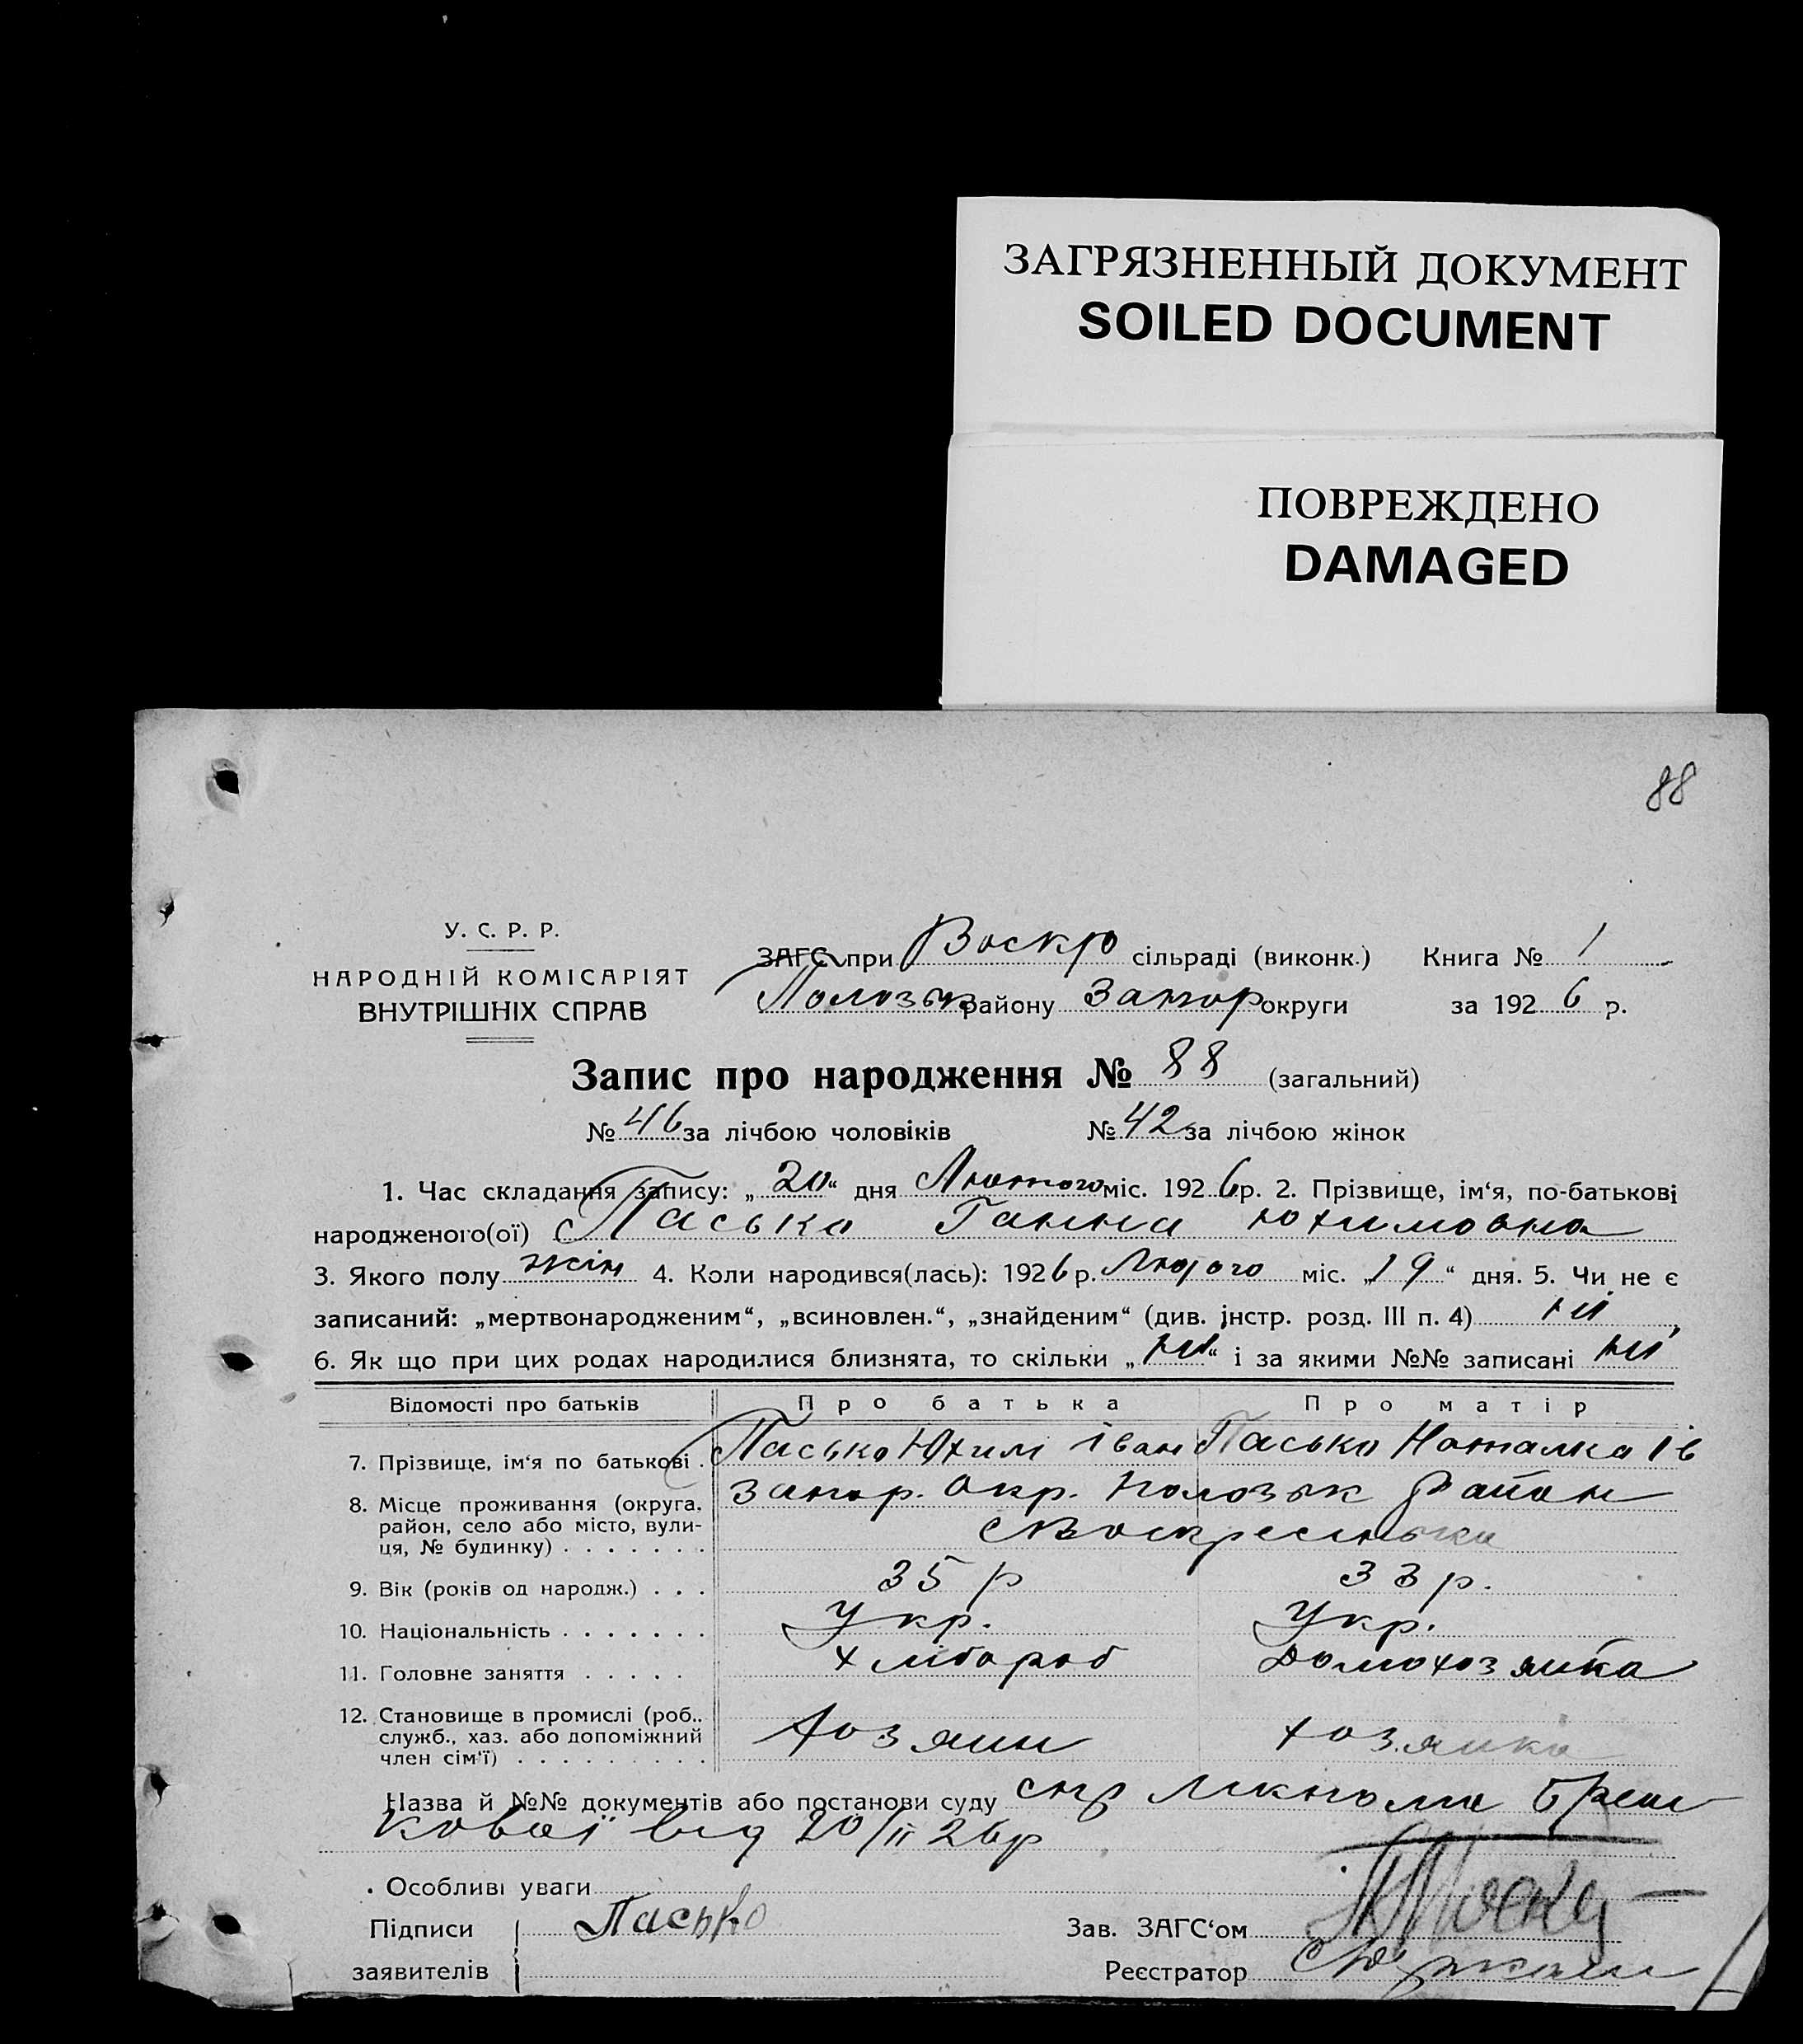 ЗАГРЯЗНЕННЫЙ ДОКУМЕНТ
SOILED DOCUMENT
ПОВРЕЖДЕНО
DAMAGED
88
У. С. Р. Р.
НАРОДНІЙ КОМІСАРІЯТ
ВНУТРІШНІХ СПРАВ
ЗАГС при Воскр сільраді (виконк.) Книга № 1
Полозьк району Запор округи за 1926 р.
Запис про народження № 88 (загальний)
№ 46 за лічбою чоловіків № 42 за лічбою жінок
1. Час складання запису: „20“ дня Лютого міс. 1926 р. 2. Прізвище, ім‘я, по-батькові
народженого(ої) Пасько Ганна Юхимовна
3. Якого полу жін 4. Коли народився(лась): 1926 р. Лютого міс. „19“ дня. 5. Чи не є
записаний: „мертвонародженим“, „всиновлен.“, „знайденим“ (див. інстр. розд. III п. 4) ні
6. Як що при цих родах народилися близнята, то скільки „ні“ і за якими №№ записані ні
Відомості про батьків Про батька Про матір
7. Прізвище, ім‘я по батькові . Пасько Юхим Іван Пасько Наталка Ів
8. Місце проживання (округа, Запор. окр. Полозьк район
район, село або місто, вули- с Воскресенька
ця, № будинку) . . . . . . .
9. Вік (років од народж.) . . . 35 р 33 р.
10. Національність . . . . . . . Укр. Укр.
11. Головне заняття . . . . . Хлібороб Домохозяйка
12. Становище в промислі (роб..
служб., хаз. або допоміжний хозяин хозяйка
член сім‘ї) . . . . . . . . .
Назва й №№ документів або постанови суду
від 20/II 26р
Особливі уваги
Підписи Пасько Зав. ЗАГС‘ом
заявителів Реєстратор